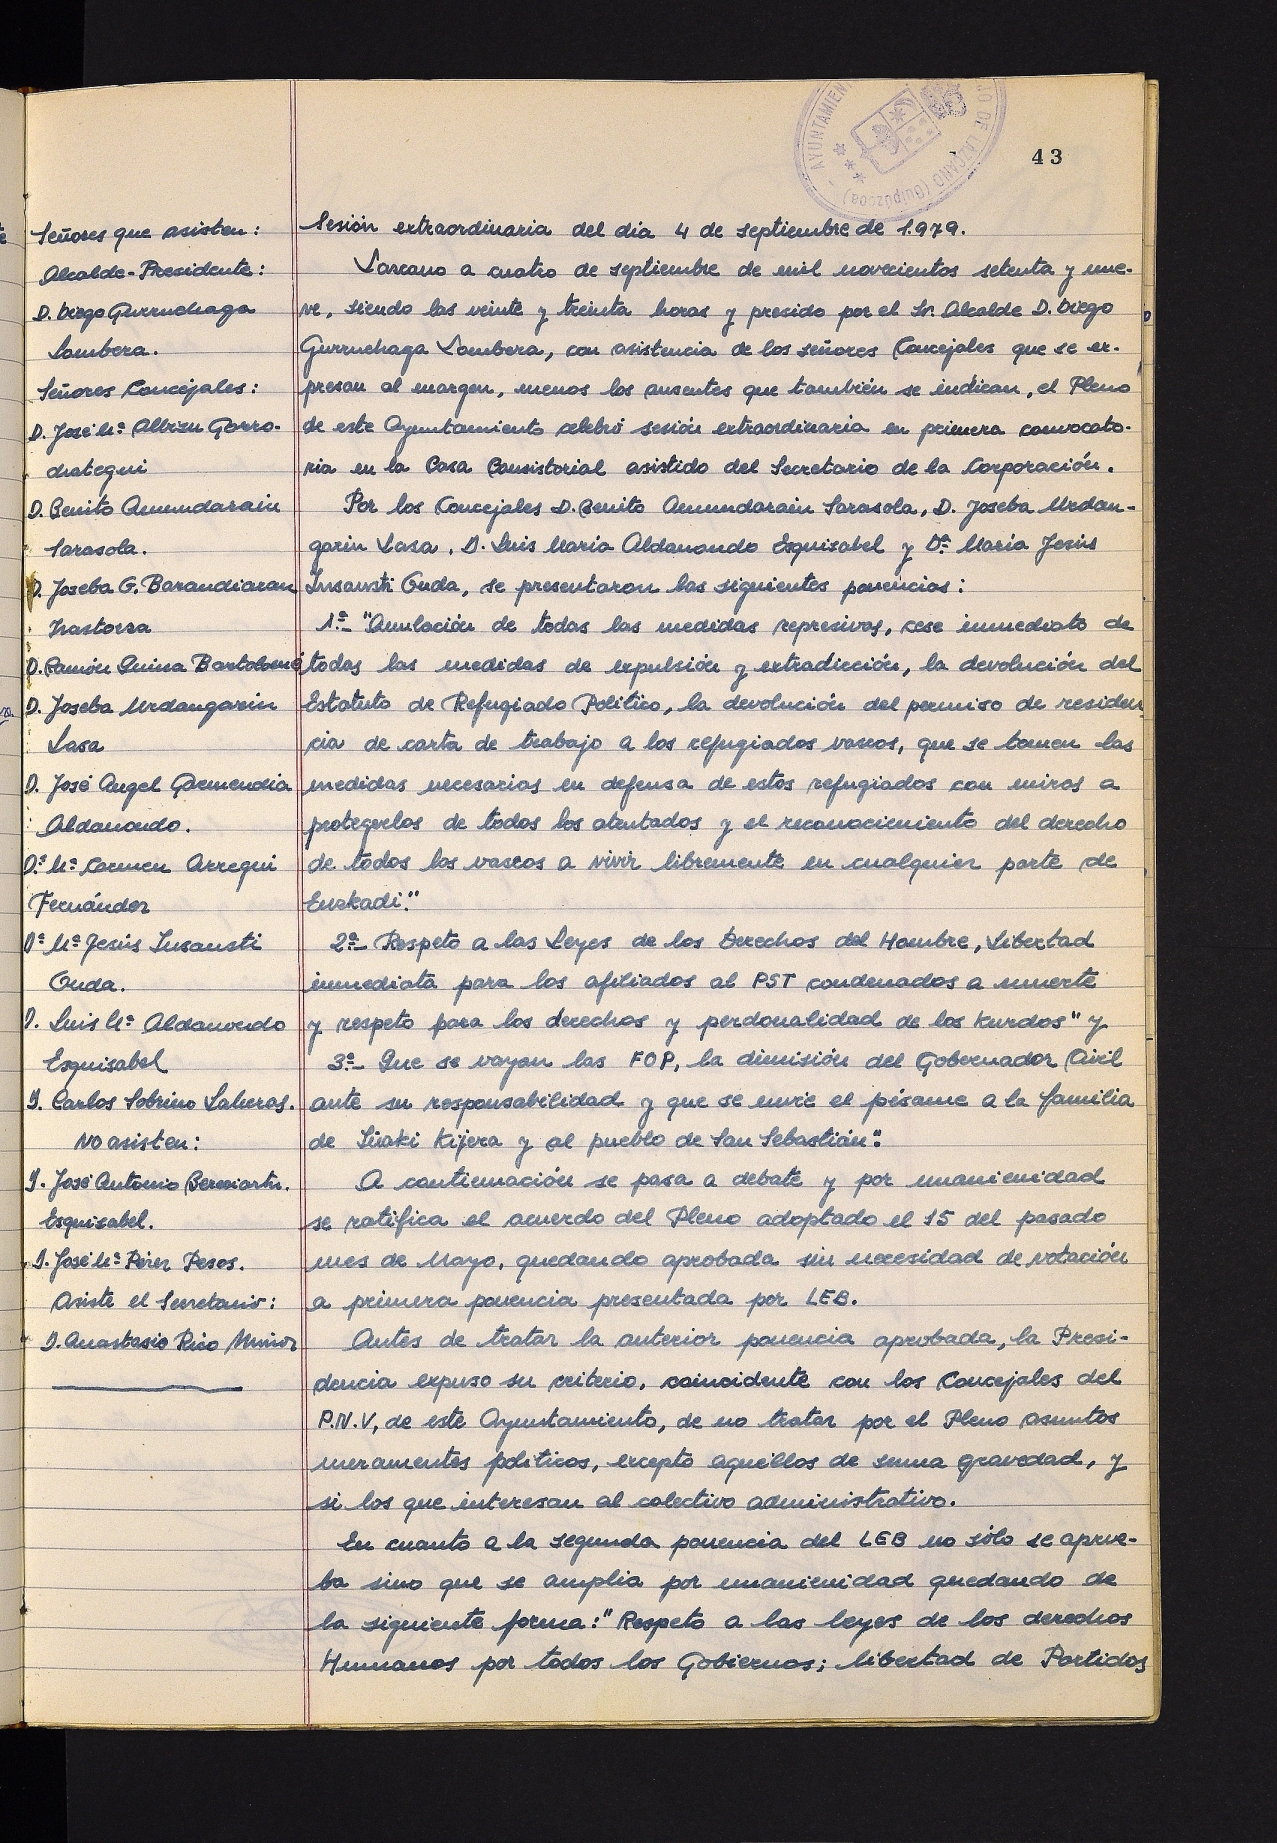 43
AYUNTAMIEN
O DE LAZCANO (Guipúzcoa)
Señores que asisten:
Alcalde-Presidente:
D. Diego Gurruchaga
Lambera.
Señores Concejales:
D. José Mª Albizu Garro-
chategui
D. Benito Amundarain
Sarasola.
D. Joseba G. Barandiaran
D. Ramón Guina Bartolomé
D. Joseba Urdangarin
Lasa
D. José Angel Garmendia
Aldanondo.
Dª Mª Carmen Arregui
Fernández
Dª Mª Jesús Insausti
Onda.
D. Luis Mª Aldanondo
Esquisabel
D. Carlos Sobrino
No asisten:
D. José Antonio
Esquisabel.
D. José Mª Pérez Pesos.
Asiste el Secretario:
D. Anastasio Rico Muñoz
Sesión extraordinaria del dia 4 de septiembre de 1.979.
Lazcano a cuatro de septiembre de mil novecientos setenta y nue-
ve, siendo las veinte y treinta horas y presido por el Sr. Alcalde D. Diego
Gurruchaga Lambera, con asistencia de los señores Concejales que se ex-
presan al margen, menos los ausentes que también se indican, el Pleno
de este Ayuntamiento celebró sesión extraordinaria en primera convocato-
ria en la Casa Consistorial asistido del Secretario de la Corporación.
Por los Concejales D. Benito Amundarain Sarasola, D. Joseba Urdan-
garin Lasa, D. Luis María Aldanondo Esquisabel y Dª María Jesús
Insausti Onda, se presentaron las siguientes ponencias:
1ª- "Anulación de todas las medidas represivas, cese inmediato de
todas las medidas de expulsión y extradicción, la devolución del
Estatuto de Refugiado Político, la devolución del permiso de residen
cia de carta de trabajo a los refugiados vascos, que se tomen las
medidas necesarias en defensa de estos refugiados con miras a
protegerlos de todos los atentados y el reconocimiento del derecho
de todos los vascos a vivir libremente en cualquier parte de
Euzkadi."
2ª- Respeto a las Leyes de los Derechos del Hombre, Libertad
inmediata para los afiliados al PST condenados a muerte
y respeto para los derechos y perdonalidad de los Kurdos" y
3ª- Que se vayan las FOP, la dimisión del Gobernador Civil
ante su responsabilidad y que se envie el pésame a la familia
de Iñaki Kijera y al pueblo de San Sebastián".
A continuación se pasa a debate y por unanimidad
se ratifica el acuerdo del Pleno adoptado el 15 del pasado
mes de Mayo, quedando aprobada sin necesidad de votación
a primera ponencia presentada por LEB.
Antes de tratar la anterior ponencia aprobada, la Presi-
dencia expuso su criterio, coincidente con los Concejales del
P.N.V, de este Ayuntamiento, de no tratar por el Pleno asuntos
meramentes políticos, excepto aquéllos de suma gravedad, y
si los que interesan al colectivo administrativo.
En cuanto a la segunda ponencia del LEB no sólo se aprue-
ba sino que se amplia por unanimidad quedando de
la siguiente forma: "Respeto a las leyes de los derechos
Humanos por todos los Gobiernos; libertad de Partidos